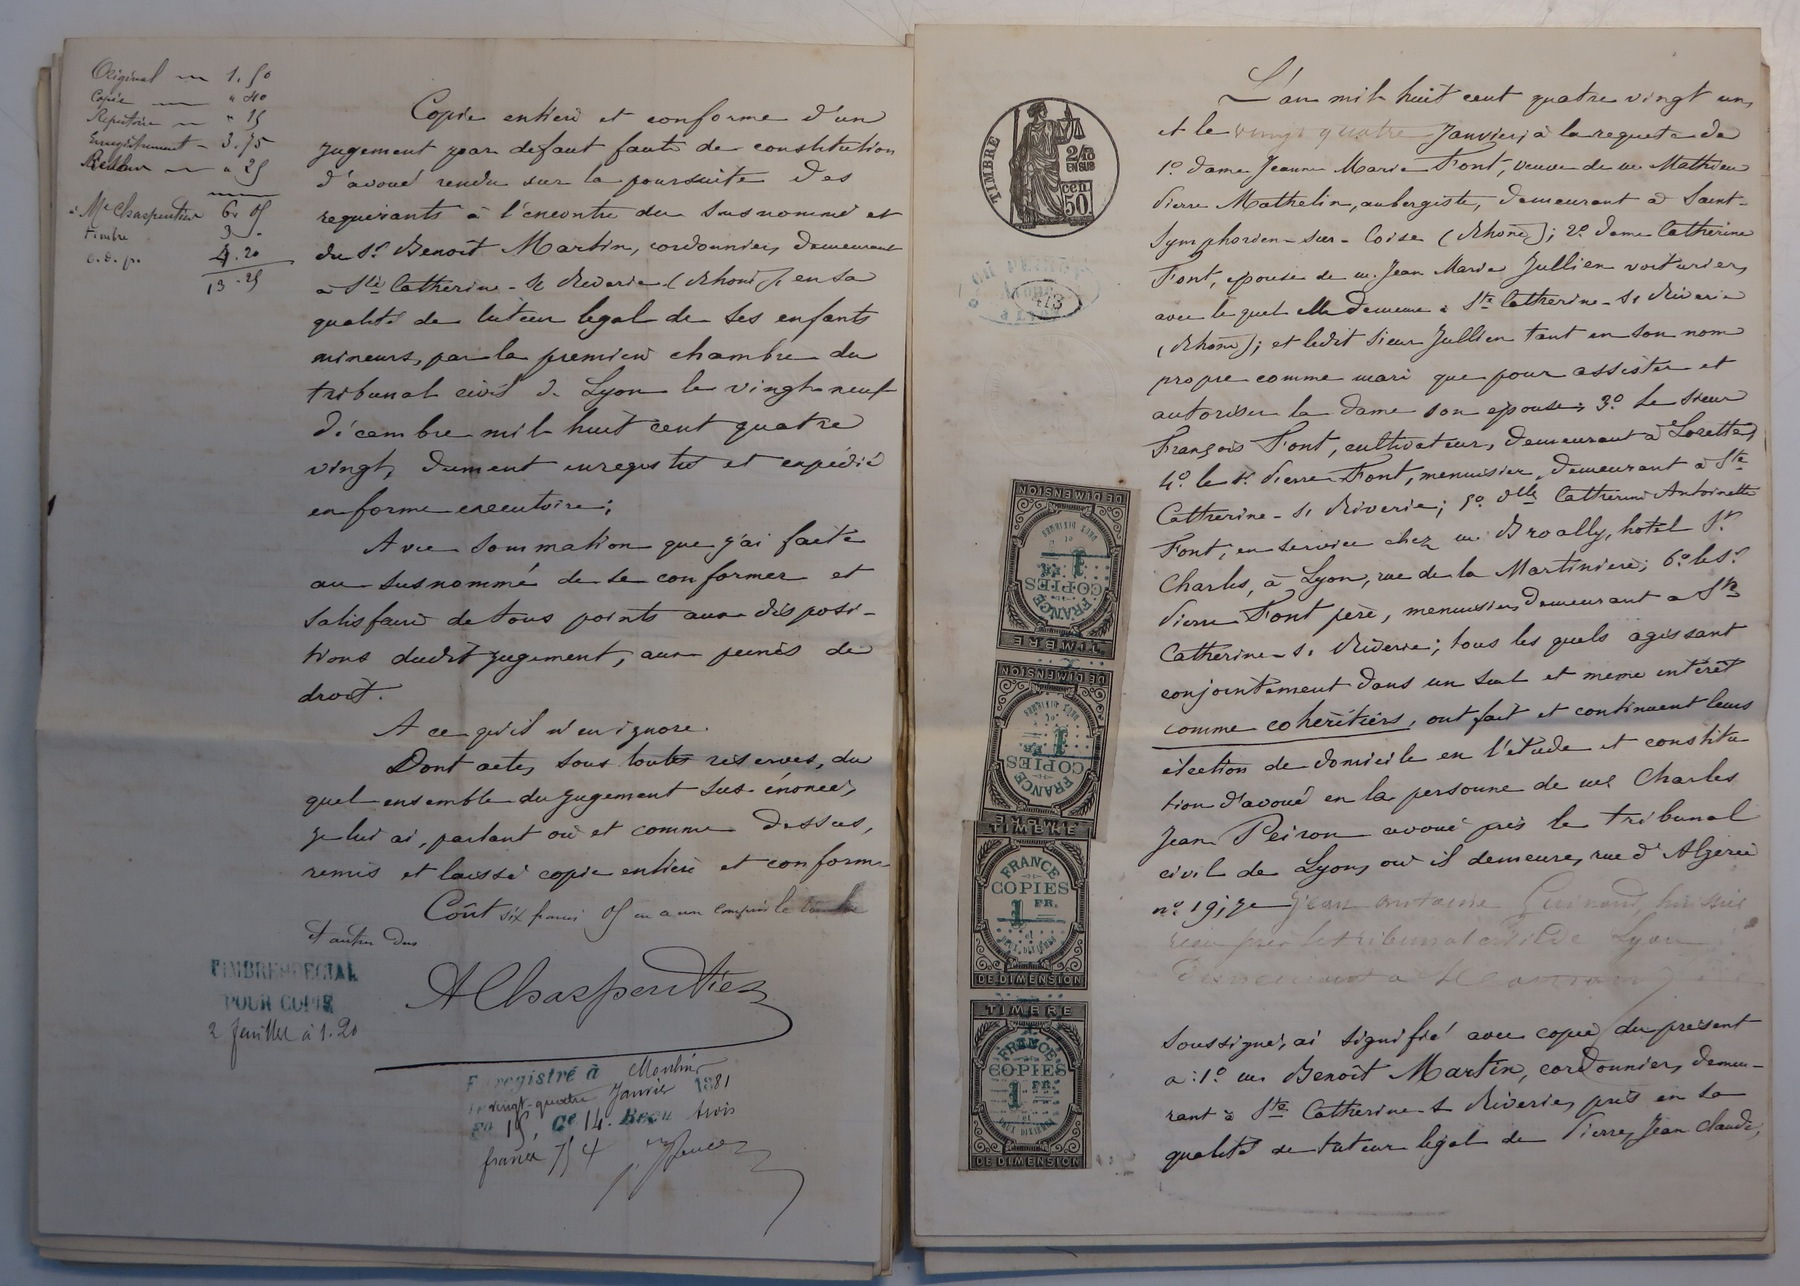 Original — 1.50
Copie — " 40
Repertoire — " 15
Enregistrement — 3.75
— " 25
à Me Charpentier 6 . 05
timbre 3 .
c. d. p. 4.20
13.25
Copie entière et conforme d'un
jugement par defaut faute de constitution
d'avoué rendu sur la poursuite des
requérants à l'encontre du susnommé et
du Sr. Benoît Martin, cordonnier, demeurant
à Ste Catherine-s Riverie (Rhône), en sa
qualité de tuteur legal de ses enfants
mineurs, par la première chambre du
tribunal civil de Lyon le vingt-neuf
décembre mil huit cent quatre
vingt, dument enregistré et expédié
en forme executoire;
Avec sommation que j'ai faite
au susnommé de se conformer et
satisfaire de tous points aux disposi-
tions dudit jugement, aux peines de
droit.
A ce qu'il n'en ignore.
Dont acte, sous toutes réserves, du
quel ensemble du jugement sus-énoncé,
je lui ai, parlant où et comme dessus,
remis et laissé copie entière et conforme
Coût six francs 05 en a un compris le
et autres dus
ACharpentier
TIMBRE SPECIAL
POUR COPIE
2 feuilles à 1.20
Enregistré à
Janvier 1881
vingt-quatre
Fo 15, Ce 14. Reçu trois
francs 75
L'an mil huit cent quatre vingt un,
et le vingt quatre Janvier, à la requete de
1o. dame Jeanne Marie Font, veuve de m. Mathieu
Pierre Mathelin, aubergiste, demeurant à Saint-
Symphorien-sur-Coise (Rhône); 2o. dame Catherine
Font, epouse de m. Jean Marie Jullien voiturier,
avec lequel elle demeure à Ste Catherine-s. Riverie
(Rhône); et ledit sieur Jullien tant en son nom
propre comme mari que pour assister et
autoriser la dame son epouse; 3o. le sieur
François Font, cultivateur, demeurant à Lorette;
4o. le sr. Pierre Font, menuisier, demeurant à Ste
Catherine-s. Riverie; 5o. dlle Catherine Antoinette
Font, en service chez m. Broally, hotel St
Charles, à Lyon, rue de la Martiniere; 6o le sr.
Pierre Font père, menuisier, demeurant à Ste
Catherine-s. Riverie; tous les quels agissant
conjointement dans un seul et meme intérêt
comme cohéritiers, ont fait et continuent leurs
élection de domicile en l'étude et constitu-
tion d'avoué en la personne de me Charles
Jean Peiron avoué près le tribunal
civil de Lyon, où il demeure, rue d'Algérie
no. 19; je Jean Antoine Guinand, huissier
près le tribunal civil de Lyon
demeurant à
soussigné, ai signifié avec copie du présent
a: 1o. m. Benoît Martin, cordonnier, demeu-
rant à Ste Catherine-s Riverie, pris en sa
qualité de tuteur légal de Pierre, Jean Claude,
TIMBRE
2/10
EN SUS
50 cen
413
à LYON
DE DIMENSION
DEUX DIXIEMES
et
1 FR.
COPIES
FRANCE
TIMBRE
DE DIMENSION
DEUX DIXIEMES
et
1 FR.
COPIES
FRANCE
TIMBRE
TIMBRE
FRANCE
COPIES
1 FR.
et
DEUX DIXIEMES
DE DIMENSION
TIMBRE
FRANCE
COPIES
1 FR.
et
DEUX DIXIEMES
DE DIMENSION